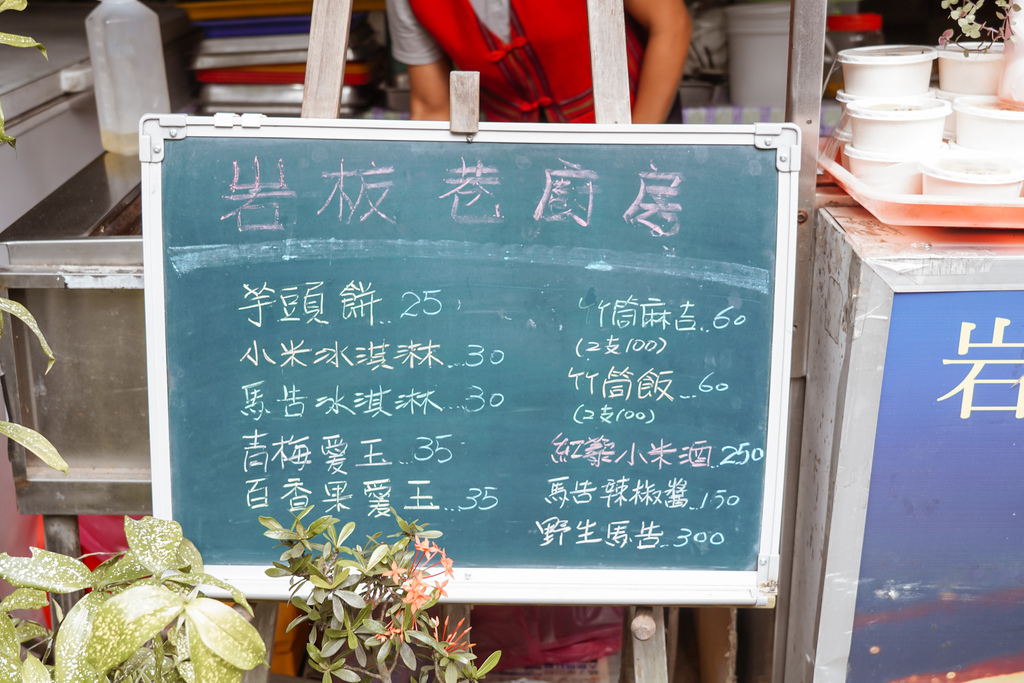 岩板巷廚房
芋頭餅..25
小米冰淇淋...30
馬告冰淇淋...30
青梅愛玉...35
百香果愛玉...35
竹筒麻吉..60
(2支100)
竹筒飯...60
(2支100)
紅藜小米酒..250
馬告辣椒醬..150
野生馬告..300
岩